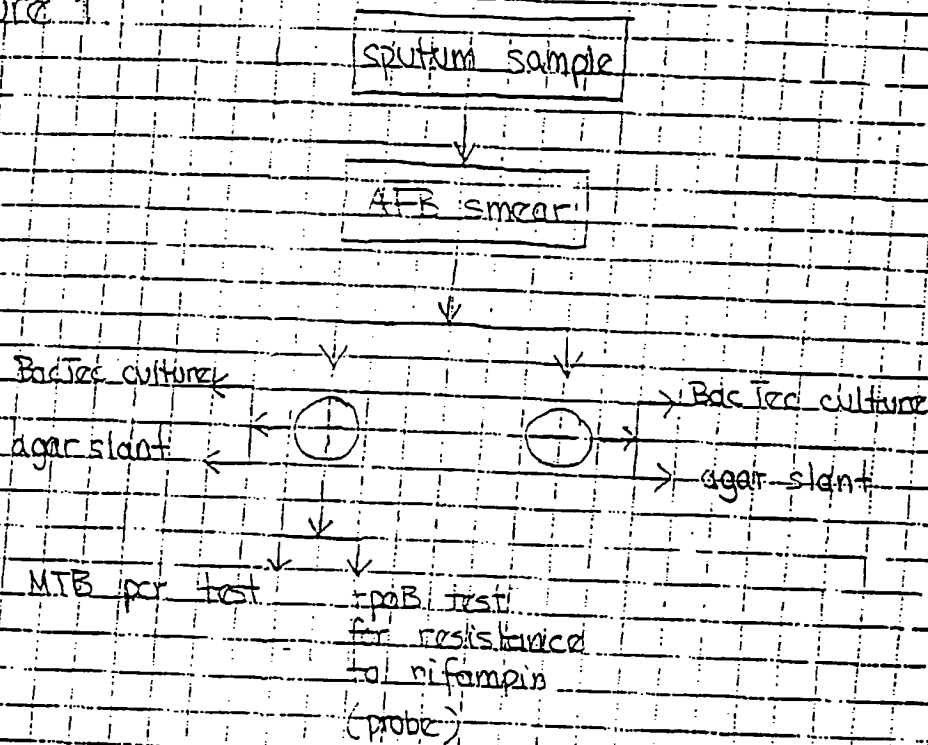 ure 1
sputum sample
AFB smear
BacTec culture
agar slant
+
−
BacTec culture
agar slant
MTB pcr test
rpoB test
for resistance
to rifampin
(probe)